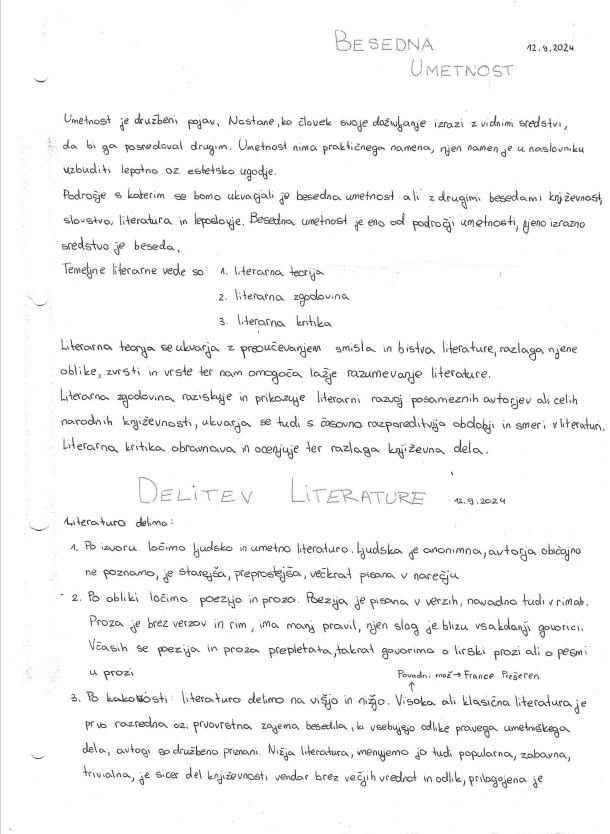 BESEDNA 12.9.2024
UMETNOST
Umetnost je družbeni pojav. Nastane, ko človek svoje doživljanje izrazi z vidnimi sredstvi,
da bi ga posredoval drugim. Umetnost nima praktičnega namena, njen namen je u naslovniku
vzbuditi lepotno oz. estetsko ugodje.
Področje s katerim se bomo ukvarjali je besedna umetnost ali z drugimi besedami književnost,
slovstvo, literatura in leposlovje. Besedna umetnost je eno od področji umetnosti, njeno izrazno
sredstvo je beseda.
Temeljne literarne vede so: 1. literarna teorija
2. literarna zgodovina
3. literarna kritika
Literarna teorija se ukvarja z preoučevanjem smisla in bistva literature, razlaga njene
oblike, zvrsti in vrste ter nam omogoča lažje razumevanje literature.
Literarna zgodovina raziskuje in prikazuje literarni razvoj posameznih avtorjev ali celih
narodnih književnosti, ukvarja se tudi s časovno razporeditvijo obdobji in smeri v literaturi.
Literarna kritika obravnava in ocenjuje ter razlaga književna dela.
DELITEV LITERATURE 12.9.2024
Literaturo delimo:
1. Po izvoru ločimo ljudsko in umetno literaturo. Ljudska je anonimna, avtorja običajno
ne poznamo, je starejša, preprostejša, večkrat pisana v narečju
2. Po obliki ločimo poezijo in prozo. Poezija je pisana v verzih, navadno tudi v rimah.
Proza je brez verzov in rim, ima manj pravil, njen slog je blizu vsakdanji govorici.
Včasih se poezija in proza prepletata, takrat govorimo o lirski prozi ali o pesmi
u prozi Povodni mož → France Prešeren
3. Po kakovosti: literaturo delimo na višjo in nižjo. Visoka ali klasična literatura je
prvo razredna oz. prvovrstna zajema besedila, ki vsebujejo odlike pravega umetniškega
dela, avtorji so družbeno priznani. Nižja literatura, imenujemo jo tudi popularna, zabavna,
trivialna, je sicer del književnosti vendar brez večjih vrednot in odlik, prilagojena je